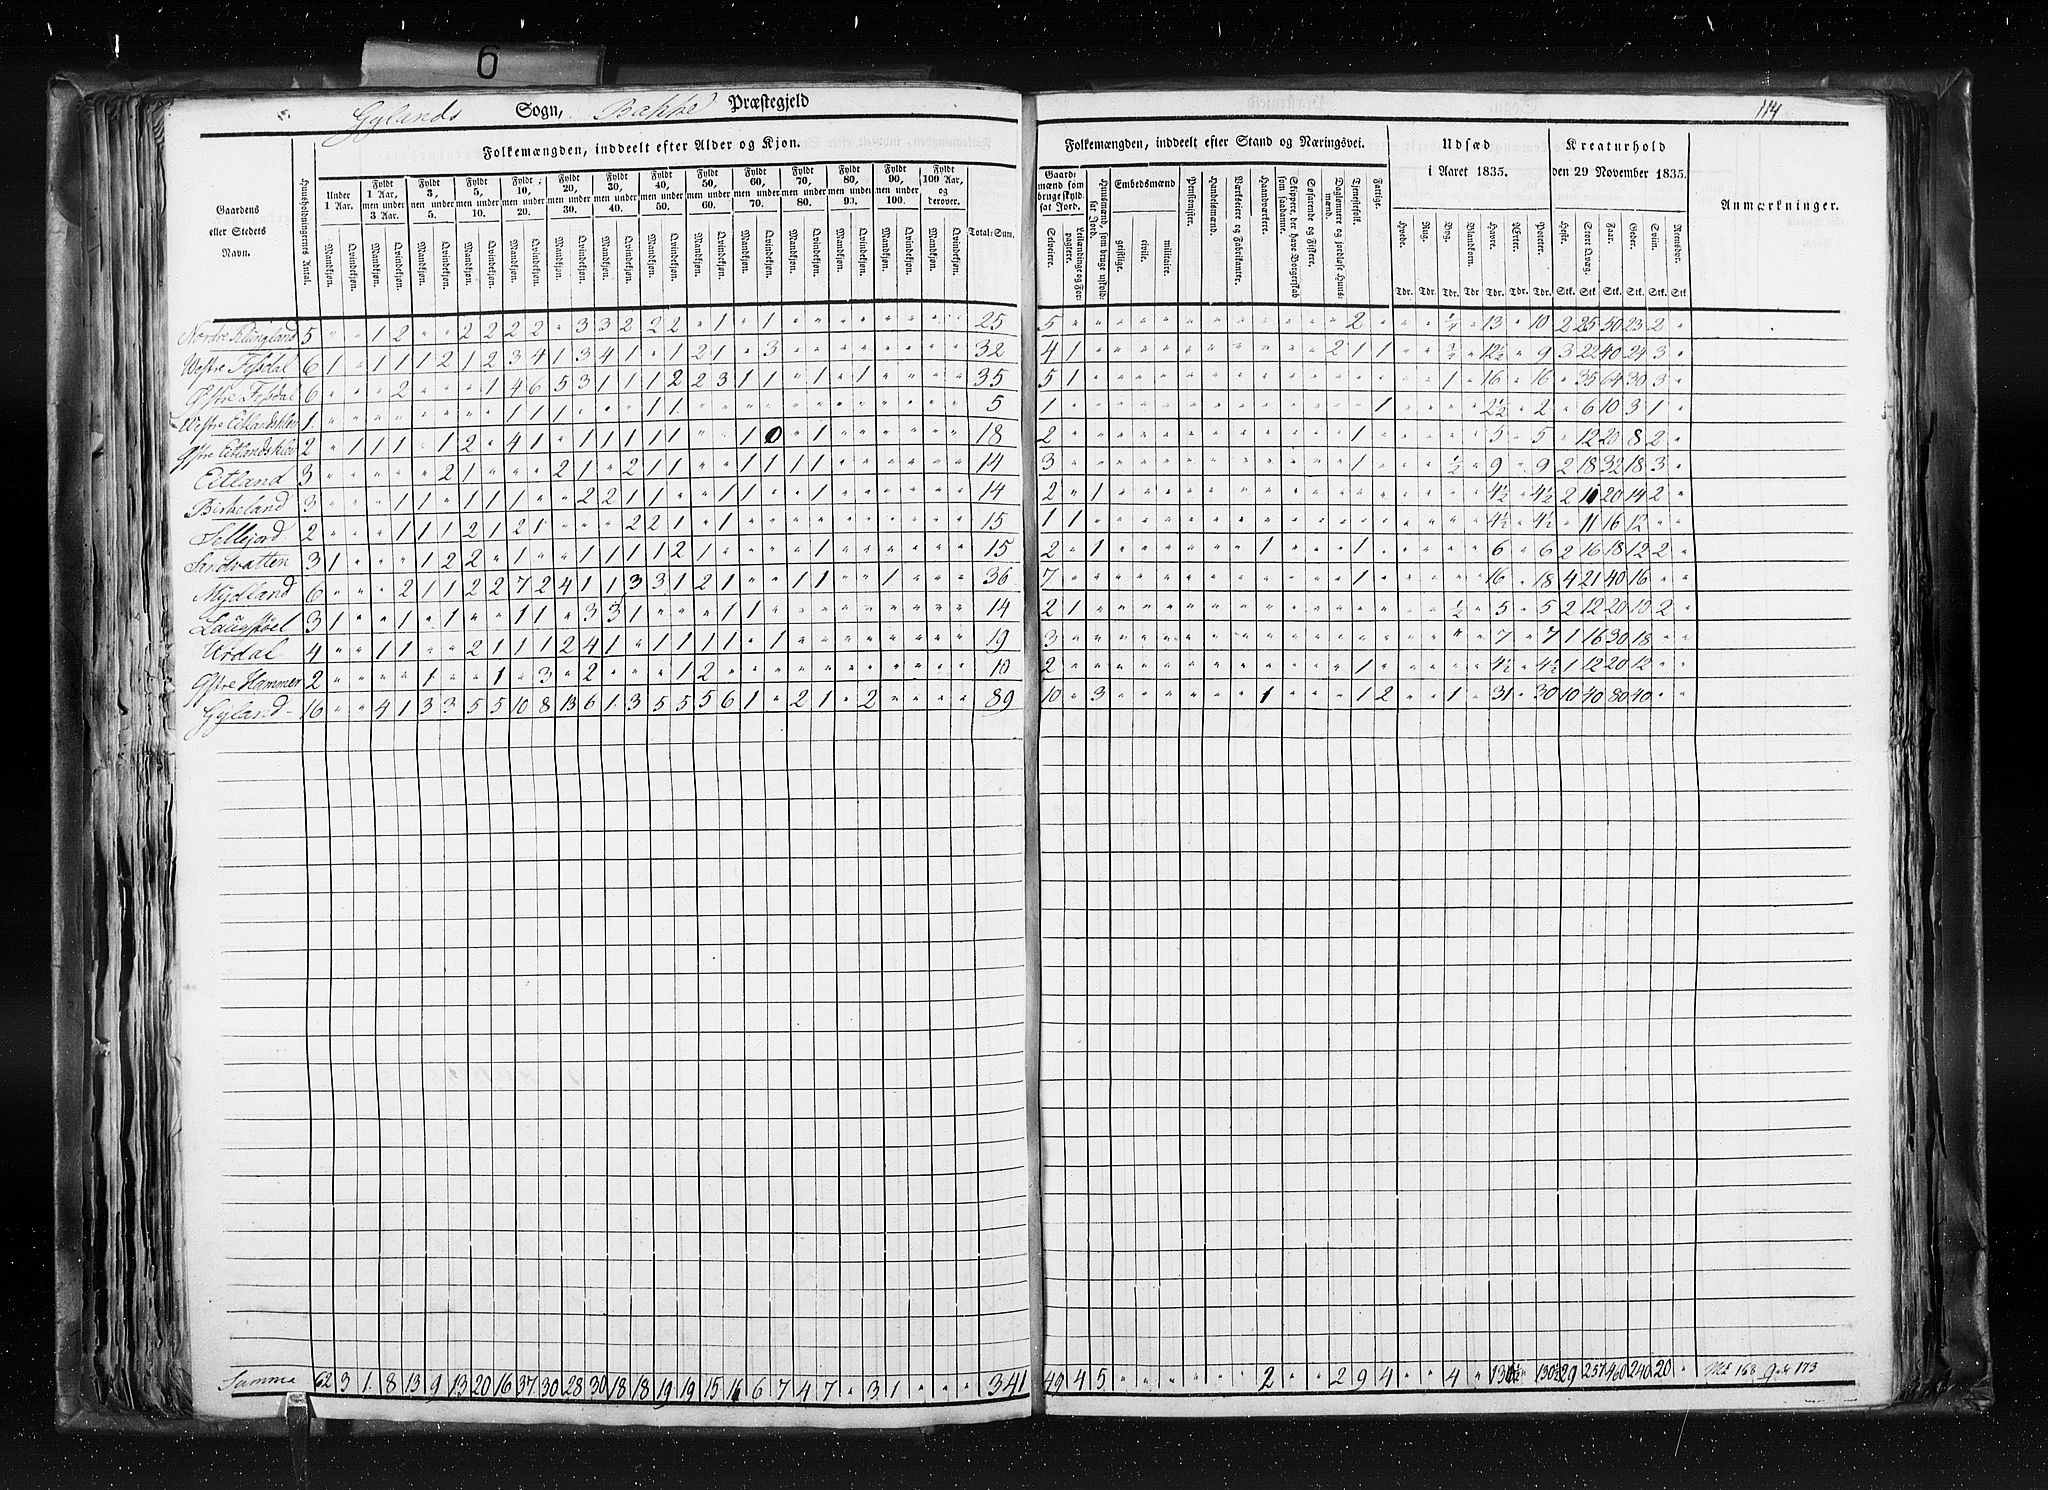 6
Gylands Sogn, Bakke Præstegjeld
114
Folkemængden, inddeelt efter Alder og Kjøn.
Folkemængden, inddeelt efter Stand og Næringsvei.
Udsæd i Aaret 1835.
Kreaturhold den 29 November 1835.
Anmærkninger.
Gaardens eller Stedets Navn.
Huusholdningernes Antal.
Under 1 Aar.
Fyldt 1 Aar, men under 3 Aar.
Fyldt 3, men under 5.
Fyldt 5, men under 10.
Fyldt 10, men under 20.
Fyldt 20, men under 30.
Fyldt 30, men under 40.
Fyldt 40, men under 50.
Fyldt 50, men under 60.
Fyldt 60, men under 70.
Fyldt 70, men under 80.
Fyldt 80, men under 90.
Fyldt 90, men under 100.
Fyldt 100 Aar, og derover.
Mandkjøn. Qvindekjøn.
Total-Sum.
Gaardmænd som bruge skyldsat Jord.
Selveiere.
Leilændinge og Forpagtere.
Huusmænd, som bruge uskyldsat Jord.
Embedsmænd
geistlige.
civile.
militaire.
Pensionister.
Handelsmænd.
Værkseiere og Fabrikanter.
Haandværkere.
Skippere, der have Borgerskab som saadanne.
Søfarende og Fiskere.
Daglønnere og jordløse Huusmænd.
Tjenestefolk.
Fattige.
Hvede. Rug. Byg. Blandkorn. Havre. Ærter. Poteter.
Tdr. Tdr. Tdr. Tdr. Tdr. Tdr. Tdr.
Heste. Stort Qvæg. Faar. Geder. Sviin. Rensdyr.
Stk. Stk. Stk. Stk. Stk. Stk
Nordre 5 " " 1 2 " " 2 2 2 2 " 3 3 2 2 2 " 1 " 1 " " " " " " " " 25 5 2 1/4 13 10 2 25 50 23 2
Westre Fesdal 6 1 " 1 1 1 2 1 2 3 4 1 3 4 1 " 1 2 1 " 3 " " " " " " " " 32 4 1 2 1 1 3/4 12 1/2 9 3 22 40 24 3
Østre Fesdal 6 " " " 2 " " " 1 4 6 5 3 1 1 1 2 2 3 1 1 " 1 " 1 " " " " 35 5 1 1 16 16 " 35 64 30 3
Westre Eitlandsklev 1 " " " " " " " " 1 1 1 " " " 1 1 " " " " " " " " " " " " 5 1 1 2 1/2 2 " 6 10 3 1
Østre Eitlandsklev 2 " 1 1 1 " 1 2 " 4 1 " 1 1 1 1 1 " " 1 0 " 1 " " " " " " 18 2 1 5 5 " 12 20 8 2
Eitland 3 " " " " " 2 1 " " " 2 1 " 2 1 1 " " 1 1 1 1 " " " " " " 14 3 1 1/2 9 9 2 18 32 18 3
Birkeland 3 " " " 1 1 " 1 1 1 " " 2 2 1 1 " " 1 1 " " 1 " " " " " " 14 2 " 1 4 1/2 4 1/2 2 10 20 14 2
Sellejord 2 " " " 1 1 1 2 1 2 1 " " " 2 2 1 " 1 " " " " " " " " " " 15 1 1 4 1/2 4 1/2 " 11 16 12
Sandvatten 3 1 " " " 1 2 2 " 1 " " 1 1 1 1 2 1 " " " " 1 " " " " " " 15 2 " 1 1 1 6 6 2 16 18 12 2
Mydland 6 " " " 2 1 1 2 2 7 2 4 1 1 3 3 1 2 1 " " 1 1 " " 1 " " " 36 7 1 16 18 4 21 40 16
Laugstøel 3 1 " " 1 " 1 " " 1 1 " 3 3 1 " " " 1 1 " " " " " " " " 14 2 1 1/2 5 5 2 12 20 10 2
Urdal 4 " " 1 1 " " 2 1 1 1 2 4 1 " 1 1 1 1 " 1 " " " " " " " " 19 3 7 7 1 16 30 18
Østre Hammer 2 " " " " 1 " " 1 " 3 " 2 " " " 1 2 " " " " " " " " " " " 10 2 1 4 1/2 4 1/2 1 12 20 12
Gyland 16 " " 4 1 3 3 5 5 10 8 13 6 1 3 5 5 5 6 1 " 2 1 " 2 " " " " 89 10 " 3 1 1 2 1 31 30 10 40 80 40
Summa 62 3 1 8 13 9 13 20 16 37 30 28 30 18 18 19 19 15 16 6 7 4 7 " 3 1 " " " 341 49 4 5 2 2 9 4 4 130 1/2 29 257 460 240 20 Mk 168 Qvk 173